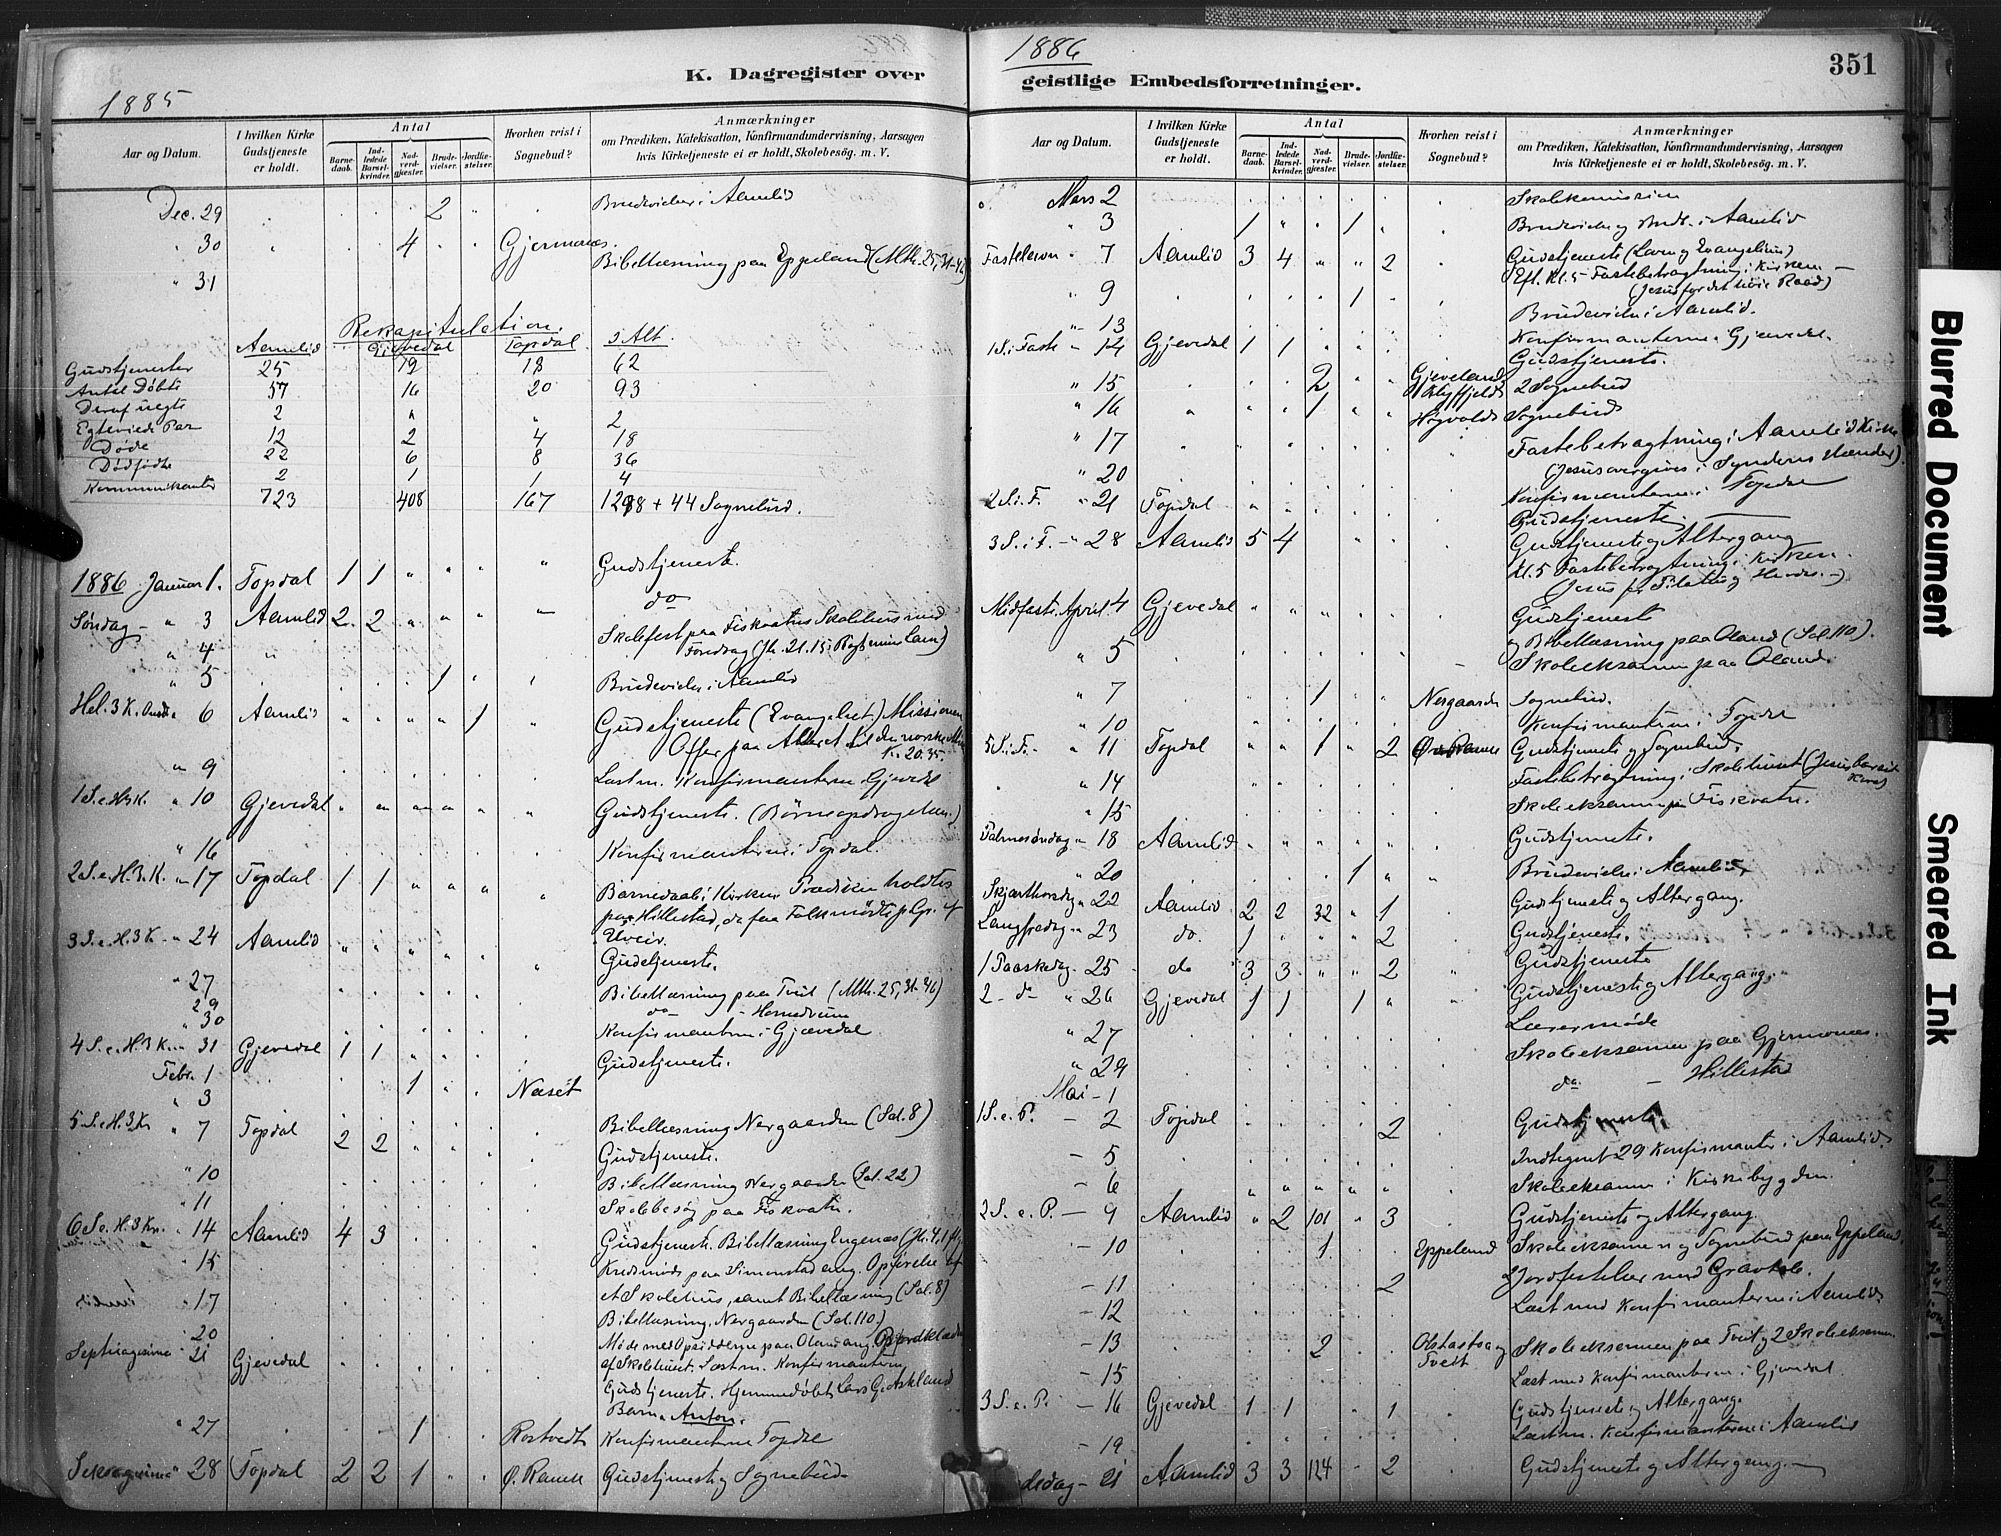 K. Dagregister over
1885
Aar og Datum. | I hvilken Kirke Gudstjeneste er holdt. | Antal | Barnedaab. | Indledede Barselkvinder. | Nadverdgjester. | Brudevielser. | Jordfæstelser. | Hvorhen reist i Sognebud? | Anmærkninger om Prædiken, Katekisation, Konfirmandundervisning, Aarsagen hvis Kirketjeneste ei er holdt, Skolebesøg. m. V.
Dec. 29 2 Brudevielse i Aamlid
" 30 4 Gjermones.
" 31 Bibellæsning paa Eppeland (Mth. 25, 31-46)
Rekapitulation.
Aamlid Gjevedal Topdal I Alt.
Gudstjenester 25 19 18 62
Antal Døbte 57 16 20 93
Deraf uegte 2 " " 2
Egteviede Par 12 2 4 18
Døde 22 6 8 36
Dødfødte 2 1 1 4
Kommunikanter 723 408 167 1298 + 44 Sognebud.
1886 Januar 1. Topdal 1 1 " " " " Gudstjeneste.
Søndag " 3 Aamlid 2 2 " " " do
" 4 Skolefest paa Fiskvatns Skolehus med
Foredrag (Jh. 21. 15: Vogt mine Lam)
" 5 1 Brudevielse i Aamlid
Hel. 3 K. " 6 Aamlid " " " " 1 " Gudstjeneste (Evangeliet) Missionen
Offer paa Alteret til den norske
K. 20.35.
" 9 Læst m. Konfirmanterne Gjevedl
1 S. e. H3K. " 10 Gjevedal Gudstjeneste. (Børneopdragelsen.)
" 16 Konfirmanterne i Topdal.
2 S. e. H. 3. K. " 17 Topdal 1 1 " " " " Barnedaab i Kirken Prædiken holdtes
paa Hillestad, da faa Folk mødte p Gr. af
Uveir.
3 S. e. H. 3 K. " 24 Aamlid Gudstjeneste.
" 27 Bibellæsning paa Tveit (Mth. 25, 31-46)
" 29 do
" 30 Konfirmanterne i Gjævedal
4 S. e. H. 3 K. " 31 Gjevedal 1 1 Gudstjeneste.
Febr. 1 1 Næset
" 3 Bibellæsning Nergaarden (Sal. 8)
5 S. e. H. 3 K. " 7 Topdal 2 2 Gudstjeneste.
" 10 Bibellæsning Nergaarden (Sal. 22)
" 11 Skolebesøg paa Fiskvatn.
6 S. e. H. 3 K. " 14 Aamlid 4 3 Gudstjeneste. Bibellæsning Engenes
" 15 Kredsmøde paa Simonstad ang. Opførelse af
et Skolehus, samt Bibellæsning (Sal. 8)
" 17 Bibellæsning, Nergaarden (Sal. 110.)
" 20 Møde med Opsidderne paa Oland ang.
af Skolehuset. Læst m. Konfirmanterne
Septuagesima " 21 Gjevedal Gudstjeneste. Hjemmedøbt Lars G. Askland
Barn Anton.
" 27 1 Rostvedt Konfirmanterne Topdal
Seksagesima " 28 Topdal 2 2 1 Ø. Ramse Gudstjeneste og Sognebud.
1886
351
geistlige Embedsforretninger.
Aar og Datum. | I hvilken Kirke Gudstjeneste er holdt. | Antal | Barnedaab. | Indledede Barselkvinder. | Nadverdgjester. | Brudevielser. | Jordfæstelser. | Hvorhen reist i Sognebud? | Anmærkninger om Prædiken, Katekisation, Konfirmandundervisning, Aarsagen hvis Kirketjeneste ei er holdt, Skolebesøg. m. V.
Mars 2 Skolekommission
" 3 1 " " 1 Brudevielse og i Aamlid
Fastelavn " 7 Aamlid 3 4 " " 2 Gudstjeneste (Loven og Evangelium)
Eft. Kl. 5 Fastebetragtning i Kirken
(Jesus for det høie Raad)
" 9 1 Brudevielse i Aamlid.
" 13 Konfirmanterne i Gjevedal.
1 S. i Faste " 14 Gjevedal 1 1 Gudstjeneste.
" 15 2 Gjeveland, 2 Sognebud
" 16 1 Høgvolds Sognebud
" 17 Fastebetragtning i Aamlid Kirke
(Jesus overgives i Synderes Hænder)
" 20 Konfirmanterne i Topdal
2 S. i. F. " 21 Topdal Gudstjeneste
3 S. i F. " 28 Aamlid 5 4 Gudstjeneste og Altergang
Kl. 5 Fastebetragtning i Kirken.
(Jesus for Pilatus og Herodes)
Midfaste. April 4 Gjevedal Gudstjeneste
og Bibellæsning paa Oland (Sal. 110).
" 5 Skoleeksamen paa Oland.
" 7 1 Nergaarden Sognebud.
" 10 Konfirmanterne i Topdal
5 S. i. F. " 11 Topdal " " 1 " 2 Ramse Gudstjeneste og Sognebud.
" 14 Fastebetragtning i Skolehuset (Jesus
" 15 Skoleeksamen paa Fiskvatn.
Palmesøndag " 18 Aamlid Gudstjeneste.
" 20 1 Brudevielse i Aamlid
Skjærthorsdag " 22 Aamlid 2 2 32 " 1 Gudstjeneste og Altergang.
Langfredag " 23 do. 1 2 Gudstjeneste.
1 Paaskedag - 25 do 3 3 " " 2 Gudstjeneste
2 - do " 26 Gjevedal 1 1 1 " Gudstjeneste og Altergang.
" 27 Lærermøde
" 29 Skoleeksamen paa Gjermones.
Mai - 1 do - Hillestad
1 S. e. P. - 2 Topdal 2 Gudstjeneste
- 5 Indtegnet 29 Konfirmanter i Aamlid.
- 6 Skoleeksamen i Kirkebygden.
2 S. e. P. - 9 Aamlid " 2 101 " 3 Gudstjeneste og Altergang.
- 10 1 Eppeland Skoleeksamen og Sognebud paa Eppeland
- 11 2 Jordfæstelser med Gravtale.
- 12 Læst med Konfirmanterne i Aamlid.
- 13 2 og Tvedt Skoleeksamen paa Tveit og 2 Skoleeksamen
- 15 Læst med Konfirmanterne i Gjevedal
3 S. e. P. - 16 Gjevedal 1 1 1 Gudstjeneste og Altergang.
- 19 Læst m. Konfirmanterne i Aamlid
- 21 Aamlid 3 3 124 - 2 Gudstjeneste og Altergang.
Blurred Document
Smeared Ink